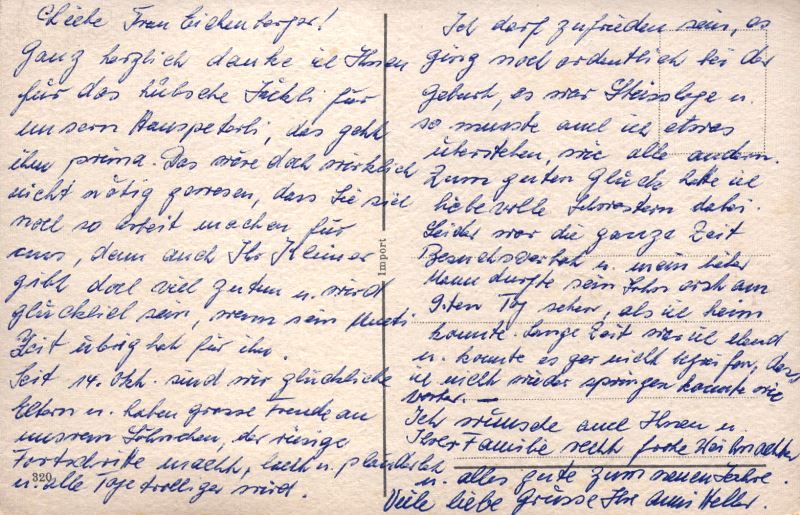 Liebe Frau Eichenberger!
Ganz herzlich danke ich Ihnen
für das hübsche Jäckli für
unsern Hanspeterli, das geht
ihm prima. Das wäre doch wirklich
nicht nötig gewesen, dass Sie sich
noch so arbeit machen für
uns, denn auch Ihr Kleiner
gibt doch viel zu tun u. wird
glücklich sein, wenn sein Mueti
Zeit übrig hat für ihn.
Seit 14. Okt. sind wir glückliche
Eltern u. haben grosse Freude an
unserem Söhnchen, der riesige
Fortschritte macht, lacht u. plauderlet
u. alle Tage drolliger wird.
320
Import
Ich darf zufrieden sein, es
ging noch ordentlich bei der
Geburt, es war Steisslage u.
so musste auch ich etwas
überstehen, wie alle andern.
Zum guten Glück hatte ich
liebevolle Schwestern dabei.
Leider war die ganze Zeit
Besuchsverbot u. mein lieber
Mann durfte sein Sohn erst am
9ten Tag sehen, als ich heim
konnte. Lange Zeit war ich elend
u. konnte es gar nicht begreifen, dass
ich nicht wieder springen konnte wie
vorher. —
Ich wünsche auch Ihnen u.
Ihrer Familie recht frohe Weihnachten
u. alles gute zum neuen Jahre.
Viele liebe Grüsse Ihre Anni Heller.